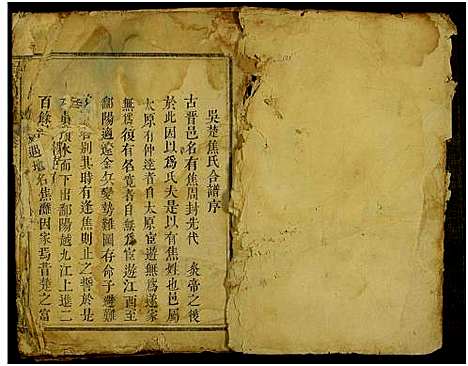 吳楚焦氏合譜序
古晋邑名有焦周封先代 炎帝之後
於此因以為氏夫是以有焦姓也邑屬
太原有仲達者自太原宦遊無為遂家
無為復有名寬者自無為宦遊江西至
鄱陽適遼金兵變勢難圖存命子
名別其時有逢焦則止之誓於是
水而下出鄱陽越九江上進二
百餘 過地名焦灘因家焉昔楚之富